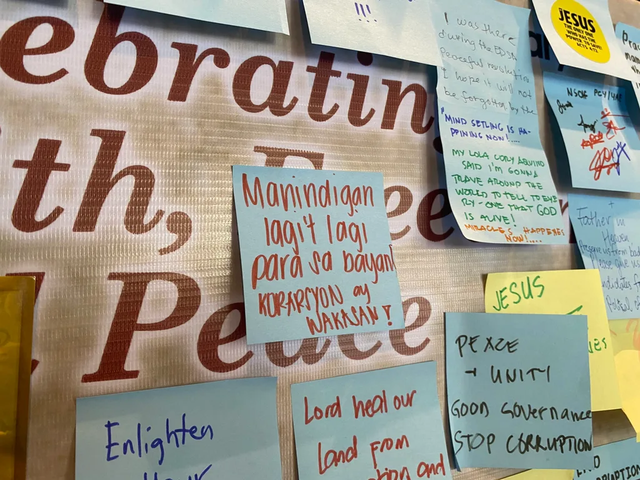 !!!
I was there
during the EDSA
peaceful revolution
I hope it will not
be forgotten by the
"MIND SETLING IS HA-
PPINING NOW!....
MY LOLA CORY AQUINO
SAID I'M GONNA
TRAVE AROUND THE
WORLD TO TELL TO EVE
RY-ONE THAT GOD
IS ALIVE!
MIRACLES HAPPENES
NOW!....
JESUS
THE ONLY ONE
WHO HAS THE
POWER TO SAVE!
ebratin
th,
Peace
Manindigan
lagi't lagi
para sa bayan!
KORAPSYON ay
WAKASAN!
Father in
Heaven
JESUS
PEACE
+ UNITY
GOOD GOVERNANCE
STOP CORRUPTION
Enlighten
Lord heal our
Land from
and